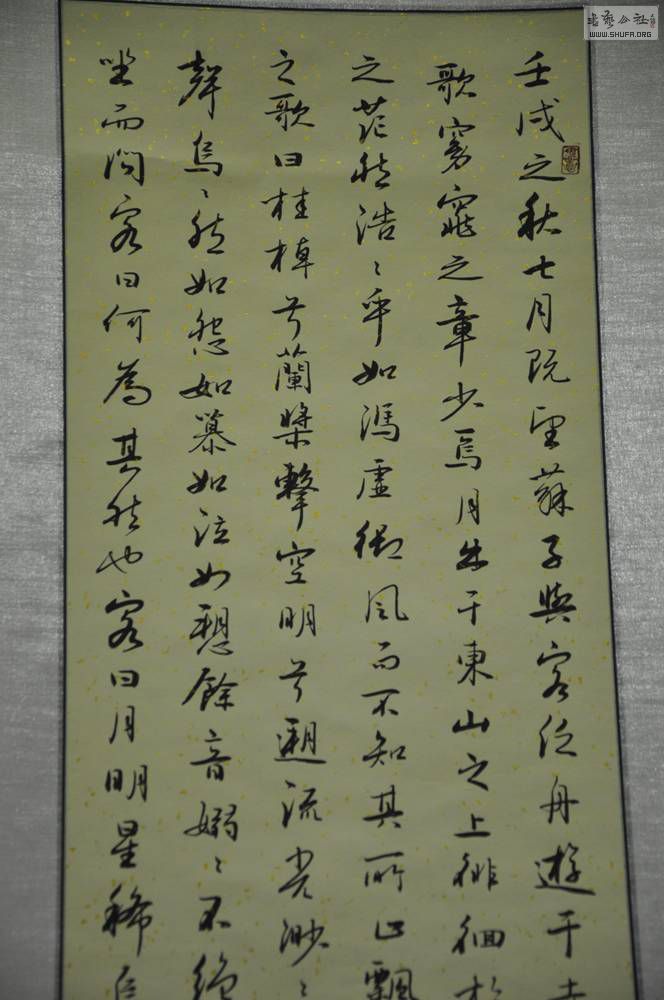 壬戌之秋七月既望蘇子與客泛舟遊于
歌窈窕之章少焉月出于東山之上徘徊於
之茫然浩〻乎如馮虛御風而不知其所止飄
之歌曰桂棹兮蘭槳擊空明兮遡流光渺〻
聲嗚〻然如怨如慕如泣如愬餘音嫋〻不絕
坐而問客曰何為其然也客曰月明星稀
WWW.SHUFA.ORG